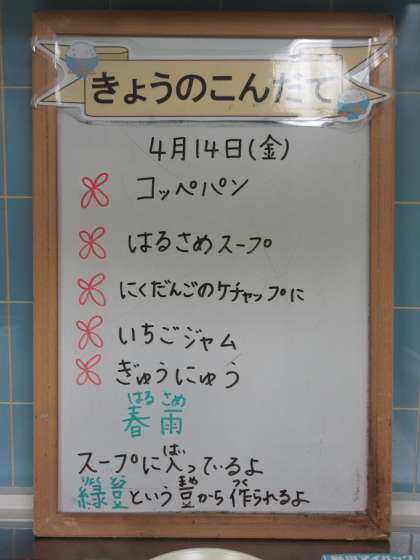 きょうのこんだて
4月14日(金)
コッペパン
はるさめスープ
にくだんごのケチャップに
いちごジャム
ぎゅうにゅう
はる さめ
春雨
スープに入っているよ
はい
りょく とう まめ つく
緑豆という豆から作られるよ